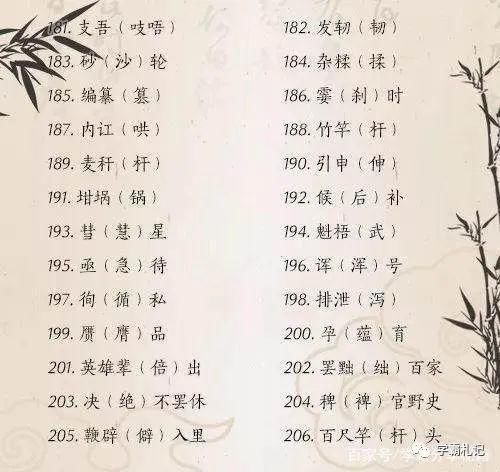 181. 支吾（吱唔）
182. 发轫（韧）
183. 砂（沙）轮
184. 杂糅（揉）
185. 编纂（篡）
186. 霎（刹）时
187. 内讧（哄）
188. 竹竿（杆）
189. 麦秆（杆）
190. 引申（伸）
191. 坩埚（锅）
192. 候（后）补
193. 彗（慧）星
194. 魁梧（武）
195. 亟（急）待
196. 诨（浑）号
197. 徇（循）私
198. 排泄（泻）
199. 赝（膺）品
200. 孕（蕴）育
201. 英雄辈（倍）出
202. 罢黜（绌）百家
203. 决（绝）不罢休
204. 稗（裨）官野史
205. 鞭辟（僻）入里
206. 百尺竿（杆）头
学霸札记